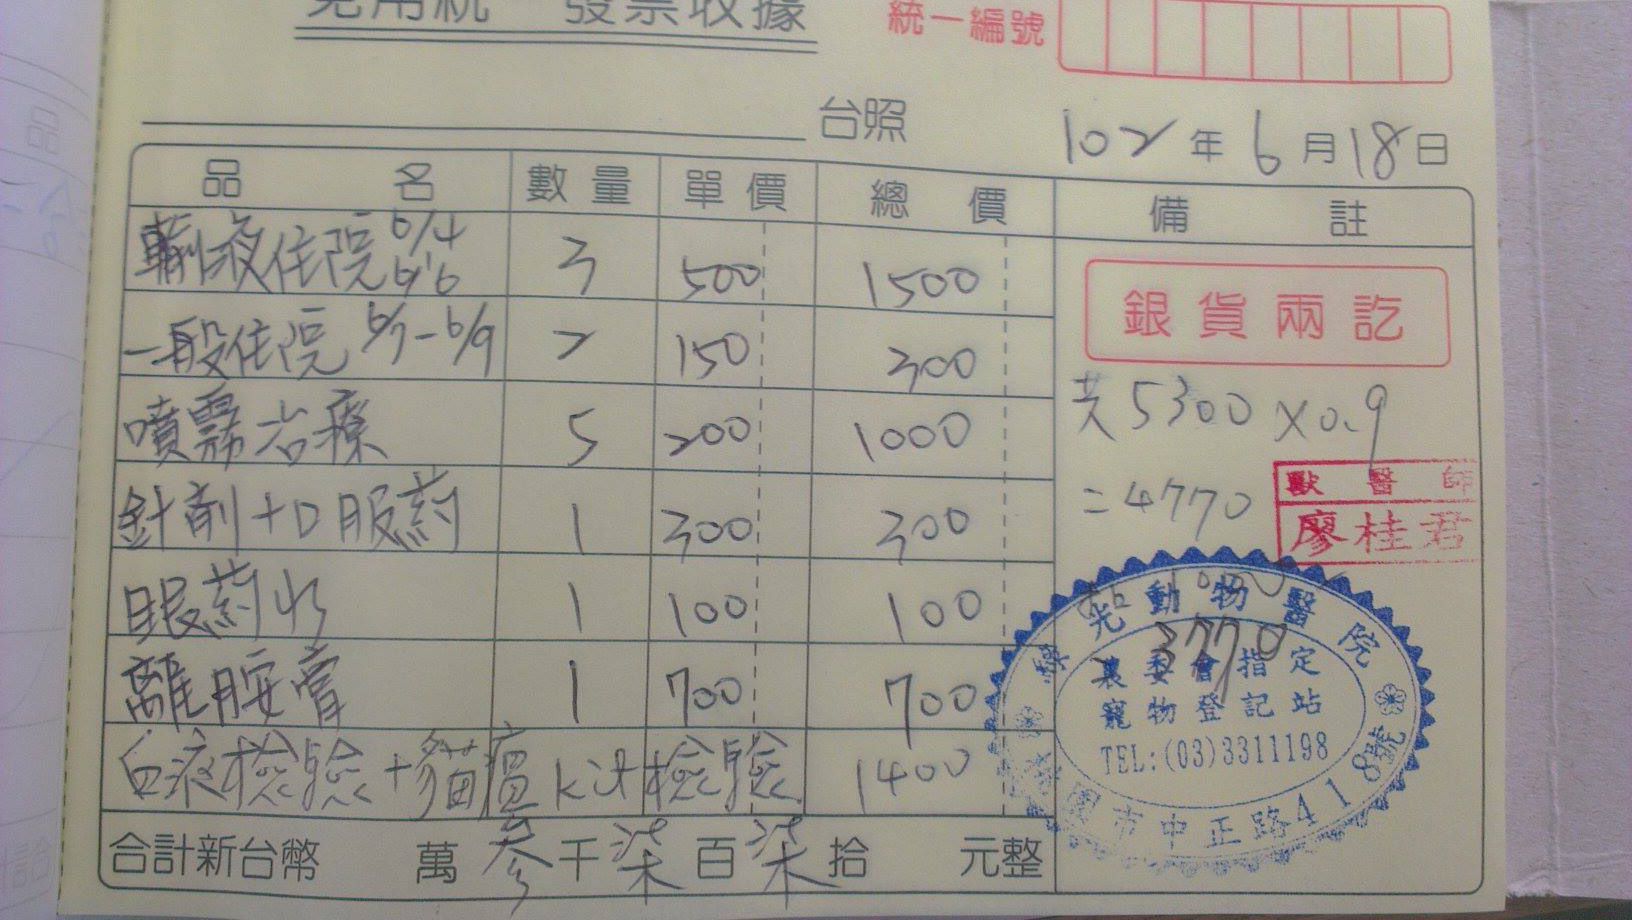 免用統一發票收據
統一編號
台照
102年6月18日
品名 數量 單價 總價 備註
輸液住院 6/4 6/6 3 500 1500
一般住院 6/7-6/9 2 150 300
噴霧治療 5 200 1000
針劑+口服药 1 300 300
眼药水 1 100 100
離胺膏 1 700 700
血液檢驗+貓瘟kit檢驗 1400
合計新台幣 萬 參千柒百柒拾 元整
銀貨兩訖
共5300×0.9
=4770
獸醫師
廖桂君
3770
光動物醫院
農委會指定
寵物登記站
TEL:(03)3311198
園市中正路418號